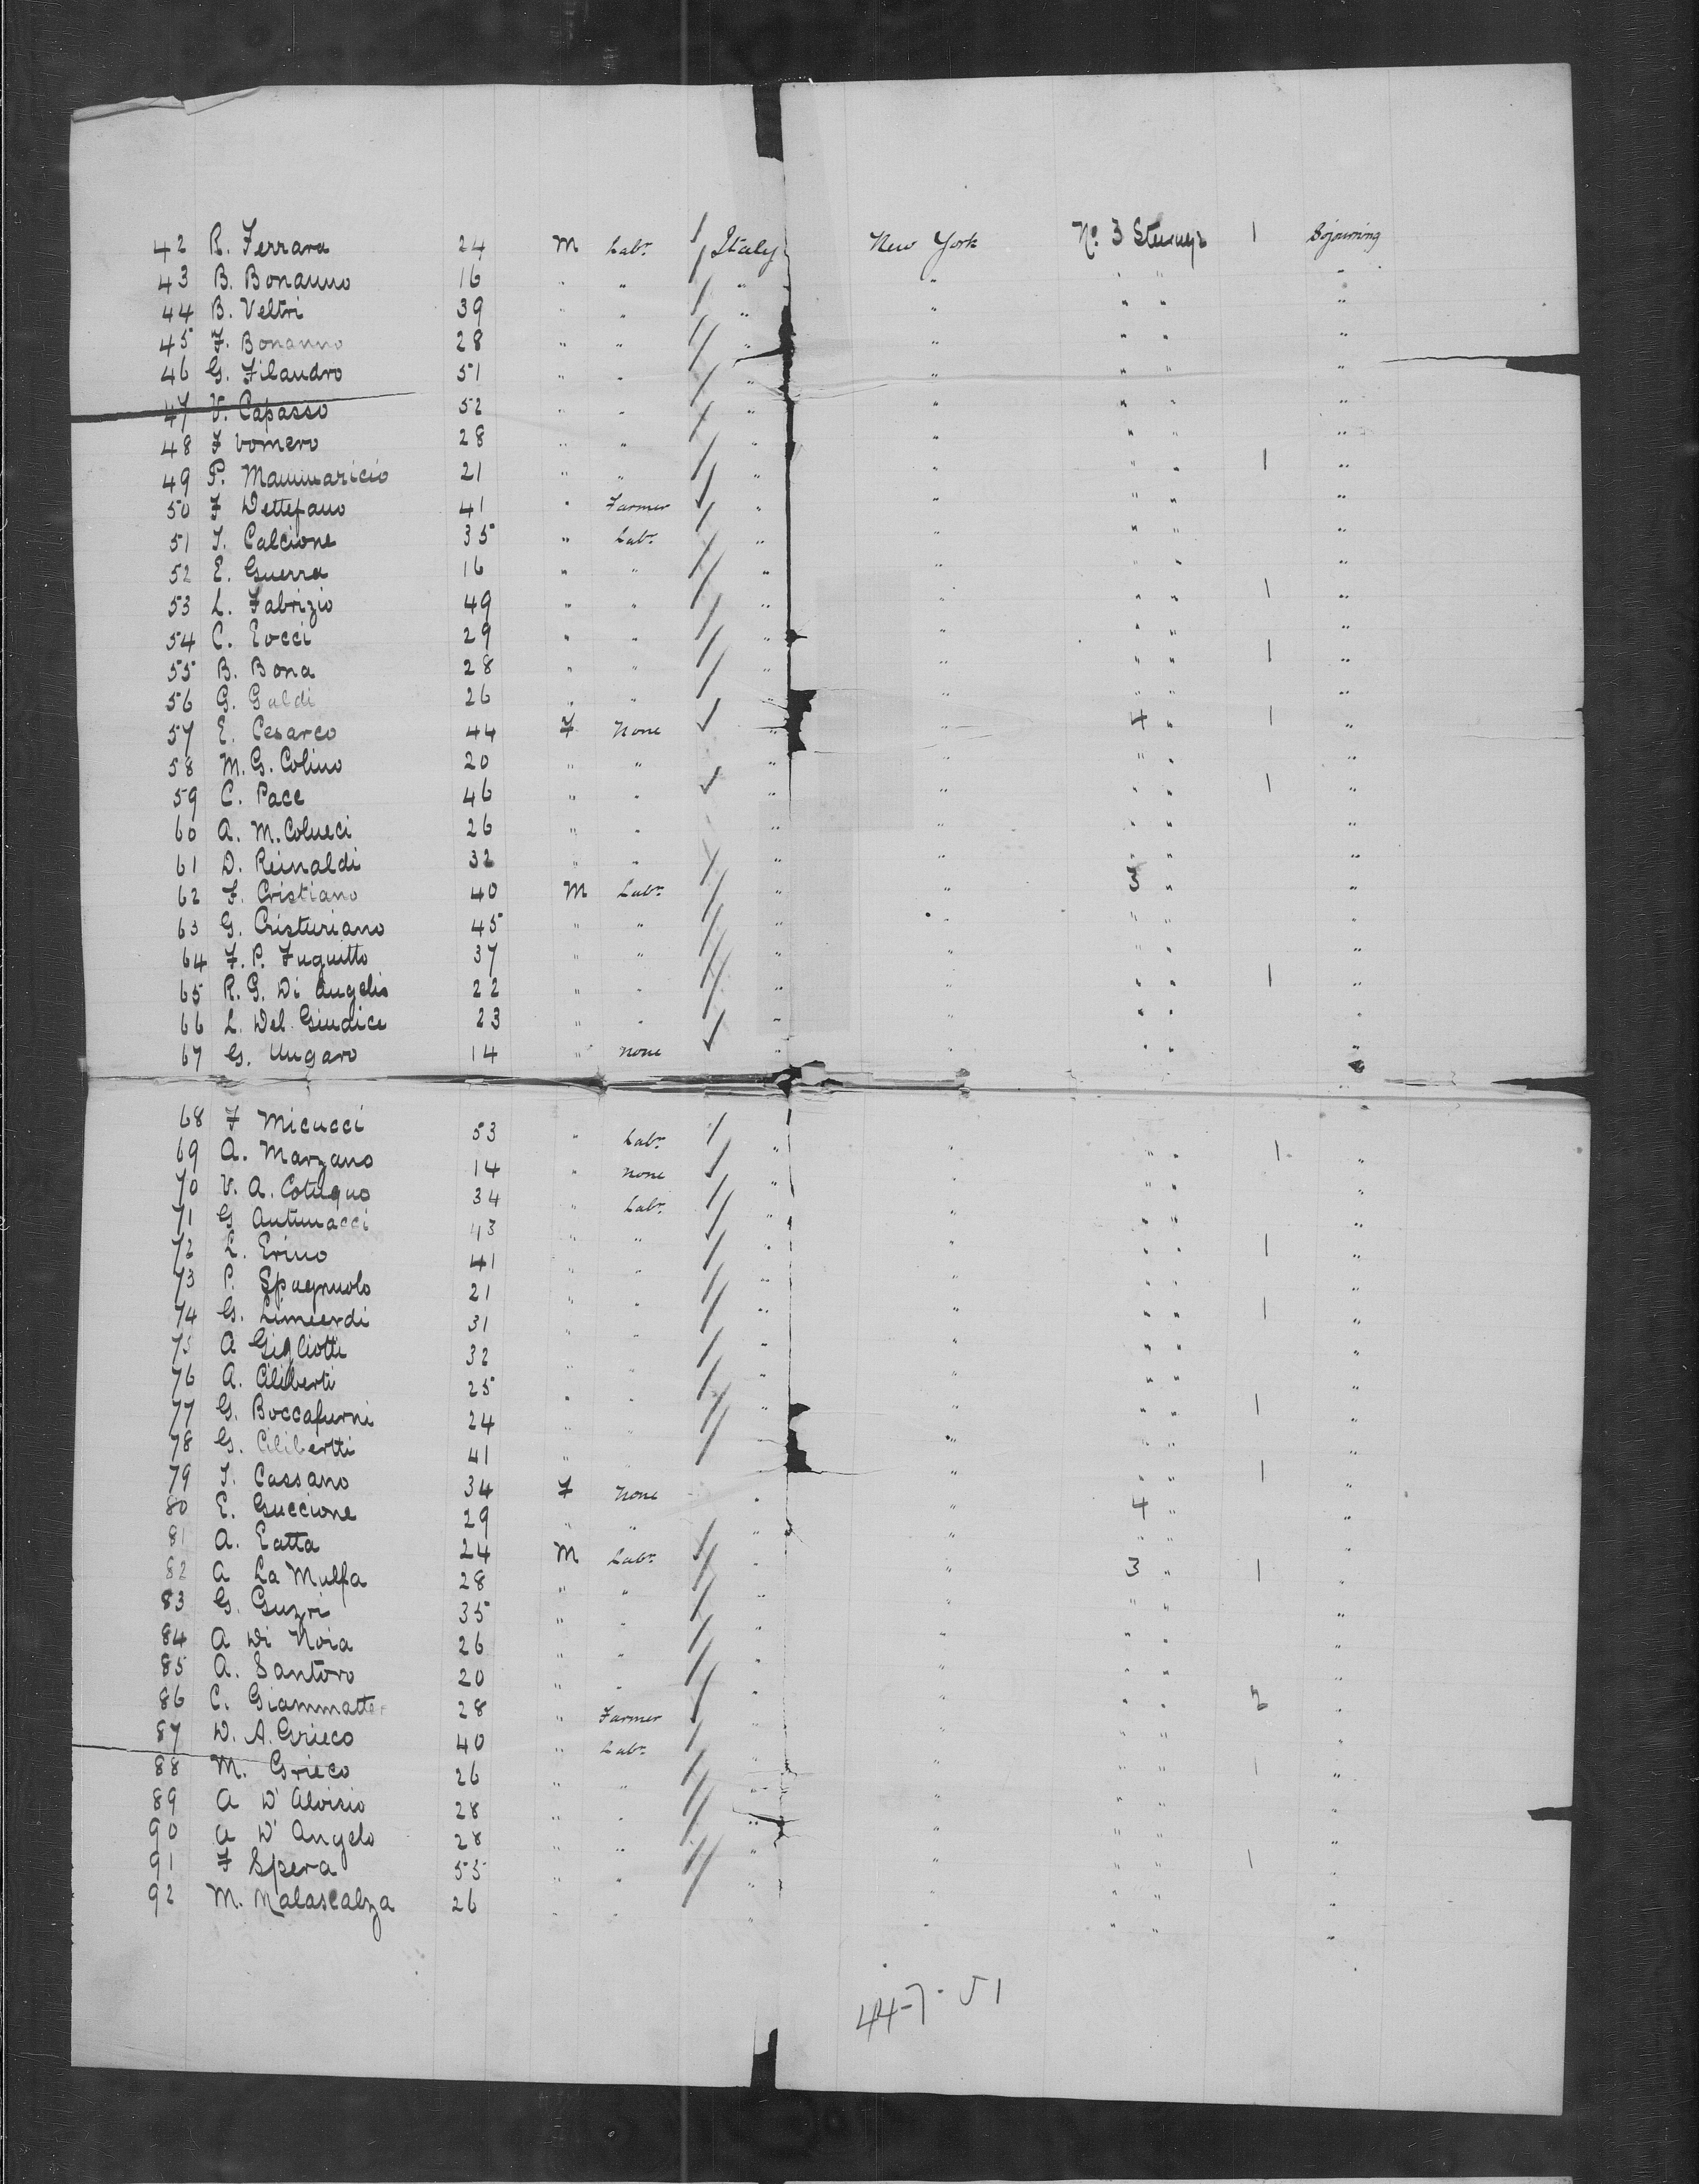 42 R. Ferrara 24 M Labr. Italy New York No. 3 Steerage 1 Sojourning
43 B. Bonanno 16 " " " " " " "
44 B. Veltri 39 " " " " " " "
45 F. Bonanno 28 " " " " " " "
46 G. Filandro 51 " " " " " " "
47 V. Capasso 52 " " " " " " "
48 F Vomero 28 " " " " " " "
49 P. Mammaricio 21 " " " " " " 1 "
50 F Dettefano 41 " Farmer " " " " "
51 T. Calcione 35 " Labr. " " " " "
52 E. Guerra 16 " " " " " " "
53 L. Fabrizio 49 " " " " " " 1 "
54 C. Eocci 29 " " " " " " "
55 B. Bona 28 " " " " " " 1 "
56 G. Galdi 26 " " " " " " "
57 E. Cesarco 44 F None " " 4 " 1 "
58 M. G. Colino 20 " " " " " " "
59 C. Pace 46 " " " " " " 1 "
60 A. M. Colucci 26 " " " " " " "
61 D. Reinaldi 32 " " " " " " "
62 F. Cristiano 40 M Labr. " " 3 " "
63 G. Cristuriano 45 " " " " " " "
64 F. P. Fuguitto 37 " " " " " " "
65 R. G. Di Angelis 22 " " " " " " 1 "
66 L. Del Giudice 23 " " " " " " "
67 G. Ungaro 14 " none " " " " "
68 F Micucci 53 " Labr. " " " " 1 "
69 A. Marzano 14 " none " " " " "
70 V. A. Cotugno 34 " Labr. " " " " "
71 G Antinacci 43 " " " " " " 1 "
72 L. Erino 41 " " " " " " "
73 P. Spagnuolo 21 " " " " " " 1 "
74 G. 31 " " " " " " "
75 A Gigliotti 32 " " " " " " "
76 A. Ciliberti 25 " " " " " " 1 "
77 G. Boccafurni 24 " " " " " " "
78 G. Cilibertti 41 " " " " " " 1 "
79 T. Cassano 34 F None " " 4 " "
80 E. Guccione 29 " " " " " " "
81 A. Eatta 24 M Labr. " " 3 " 1 "
82 A La Mulfa 28 " " " " " " "
83 G. Guzri 35 " " " " " " "
84 A Di Noia 26 " " " " " " "
85 A. Santoro 20 " " " " " " 2 "
86 C. Giammatteo 28 " Farmer " " " " "
87 D. A. Grieco 40 " Labr. " " " " 1 "
88 M. Grieco 26 " " " " " " "
89 A D'Aloisio 28 " " " " " " "
90 A D'Angelo 28 " " " " " " 1 "
91 F Spera 55 " " " " " " "
92 M. Malascalza 26 " " " " " " "
44-7-51